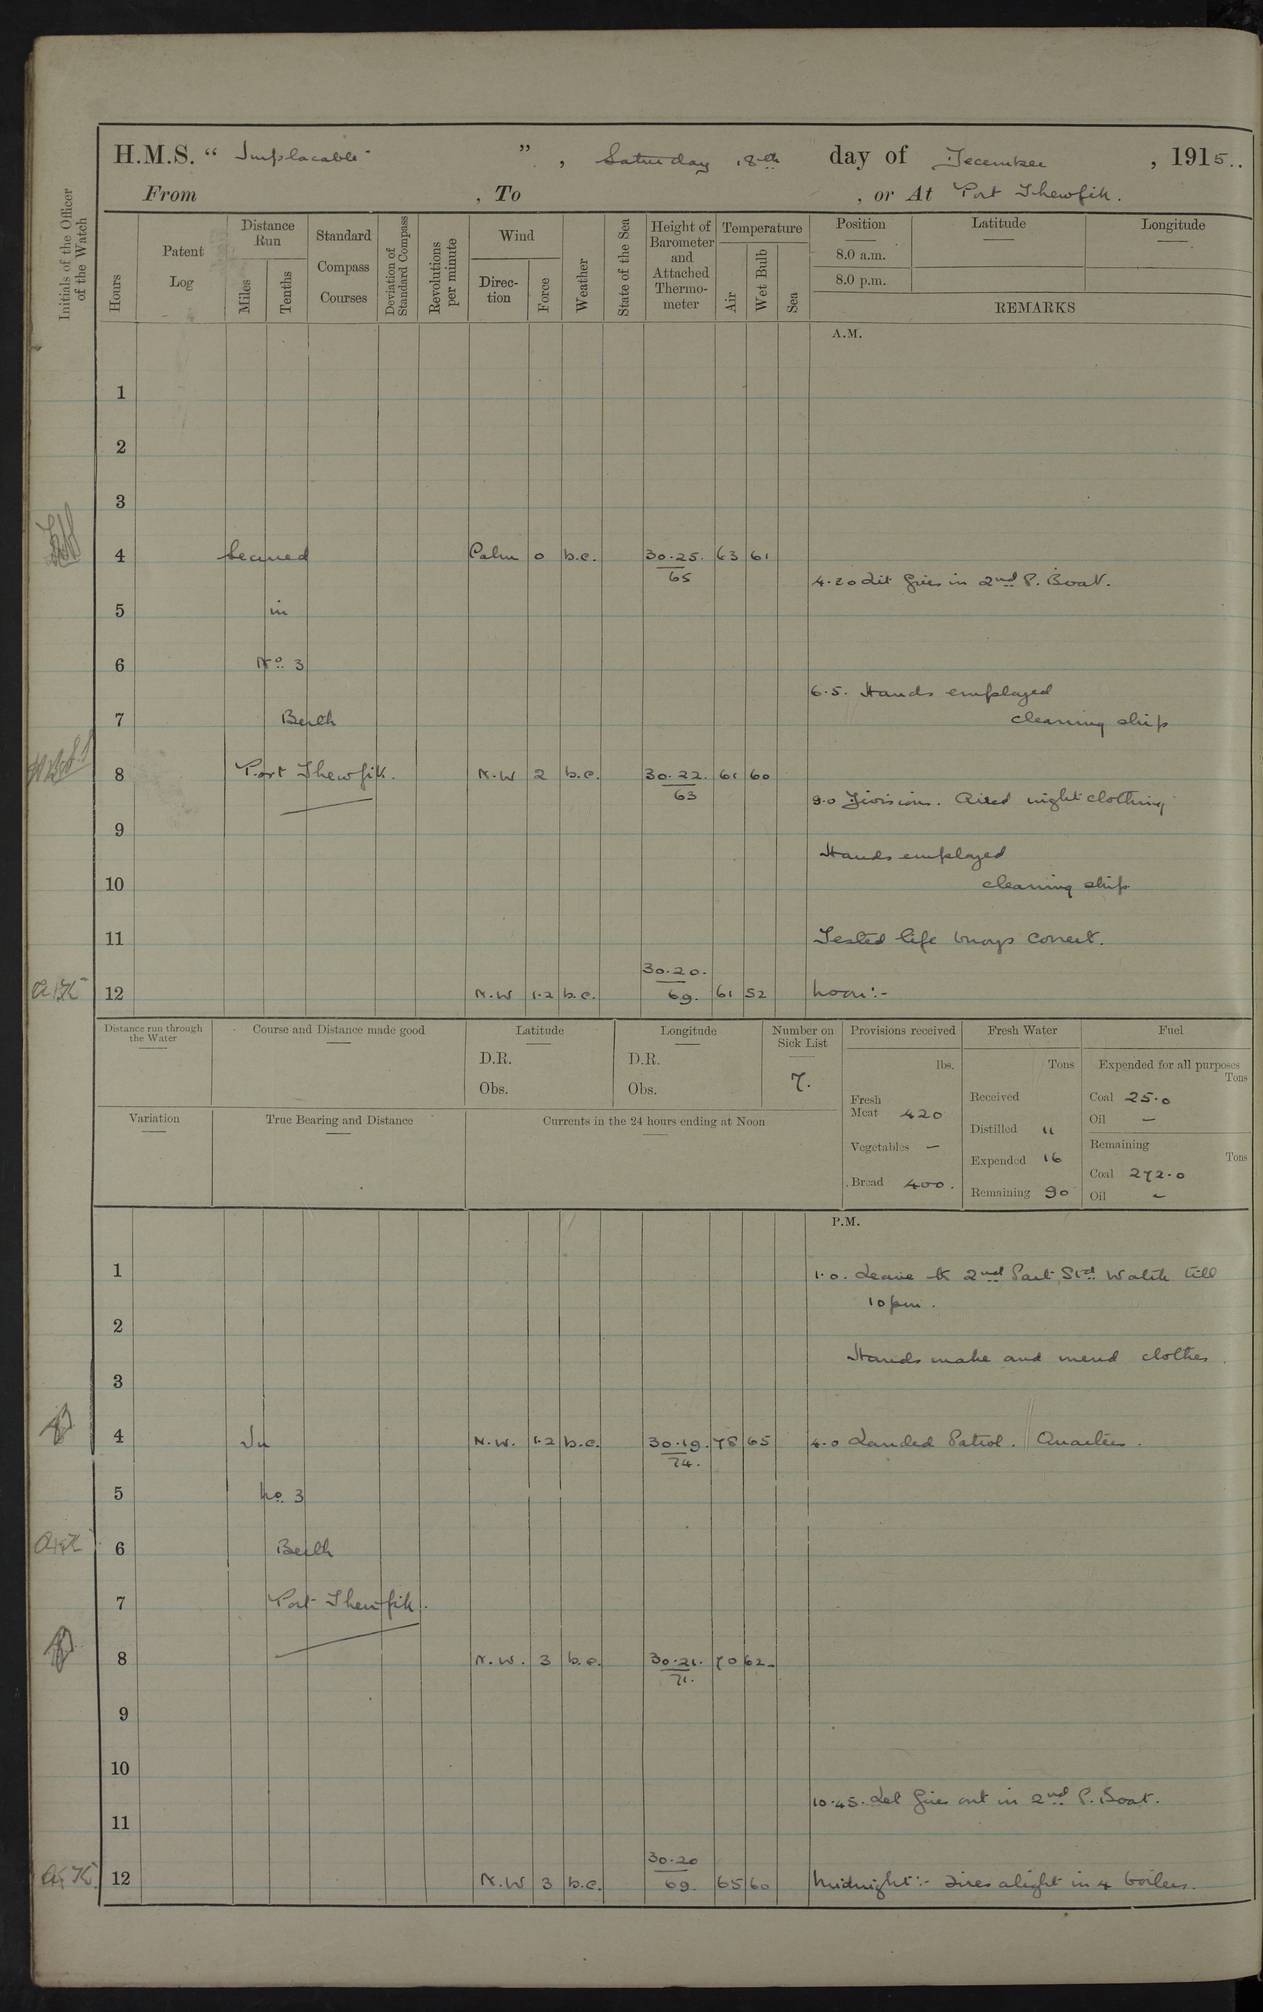 H.M.S. “ Implacable ”, Saturday 18th day of December, 1915..
From , To , or At Port Thewfik.
Initials of the Officer of the Watch
Hours
Patent Log
Distance Run
Miles
Tenths
Standard Compass Courses
Deviation of Standard Compass
Revolutions per minute
Wind
Direction
Force
Weather
State of the Sea
Height of Barometer and Attached Thermometer
Temperature
Air
Wet Bulb
Sea
Position
Latitude
Longitude
8.0 a.m.
8.0 p.m.
REMARKS
A.M.
1
2
3
4 Secured Calm 0 b.c. 30.25. 63 61
65
4.20 Lit fires in 2nd P. Boat.
5 in
6 No. 3
6.5. Hands employed
7 Berth cleaning ship
8 Port Thewfik. N.W 2 b.c. 30.22. 61 60
63
9.0 Divisions. Aired night clothing
9
Hands employed
10 cleaning ship
11 Tested life buoys correct.
30.20.
12 N.W 1.2 b.c. 69. 61 52 Noon:-
Distance run through the Water
Course and Distance made good
Latitude
D.R.
Obs.
Longitude
D.R.
Obs.
Number on Sick List
7.
Provisions received
lbs.
Fresh Meat 420
Vegetables —
Bread 400.
Fresh Water
Tons
Received
Distilled 11
Expended 16
Remaining 90
Fuel
Expended for all purposes
Tons
Coal 25.0
Oil —
Remaining
Tons
Coal 272.0
Oil —
Variation
True Bearing and Distance
Currents in the 24 hours ending at Noon
P.M.
1 1.0. Leave to 2nd Part Std Watch till
10pm.
2
Hands make and mend clothes.
3
4 In N.W. 1.2 b.c. 30.19. 78 65 4.0 Landed Patrol. Quarters.
74.
5 No. 3
6 Berth
7 Port Thewfik.
8 N.W. 3 b.c. 30.21. 70 62
71.
9
10
10.45. Let fires out in 2nd P. Boat.
11
30.20
12 N.W 3 b.c. 69. 65 60 Midnight:- Fires alight in 4 boilers.